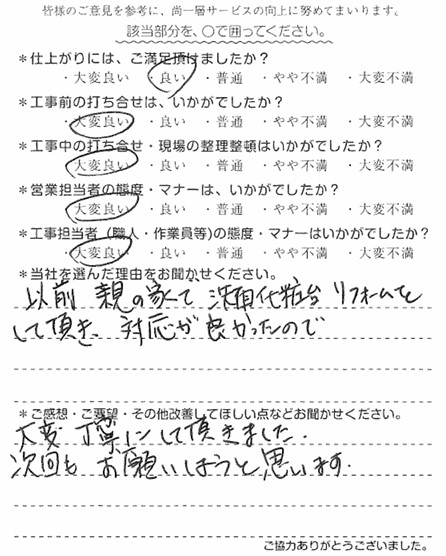 皆様のご意見を参考に、尚一層サービスの向上に努めてまいります。
該当部分を、○で囲ってください。
＊仕上がりには、ご満足頂けましたか？
・大変良い ・良い ・普通 ・やや不満 ・大変不満
＊工事前の打ち合せは、いかがでしたか？
・大変良い ・良い ・普通 ・やや不満 ・大変不満
＊工事中の打ち合せ・現場の整理整頓はいかがでしたか？
・大変良い ・良い ・普通 ・やや不満 ・大変不満
＊営業担当者の態度・マナーは、いかがでしたか？
・大変良い ・良い ・普通 ・やや不満 ・大変不満
＊工事担当者（職人・作業員等)の態度・マナーはいかがでしたか？
・大変良い ・良い ・普通 ・やや不満 ・大変不満
＊当社を選んだ理由をお聞かせください。
以前 親の家で 洗面化粧台 リフォームを
して頂き、対応が良かったので
＊ご感想・ご要望・その他改善してほしい点などお聞かせください。
大変 丁寧にして頂きました.
次回も お願いしようと思います.
ご協力ありがとうございました。